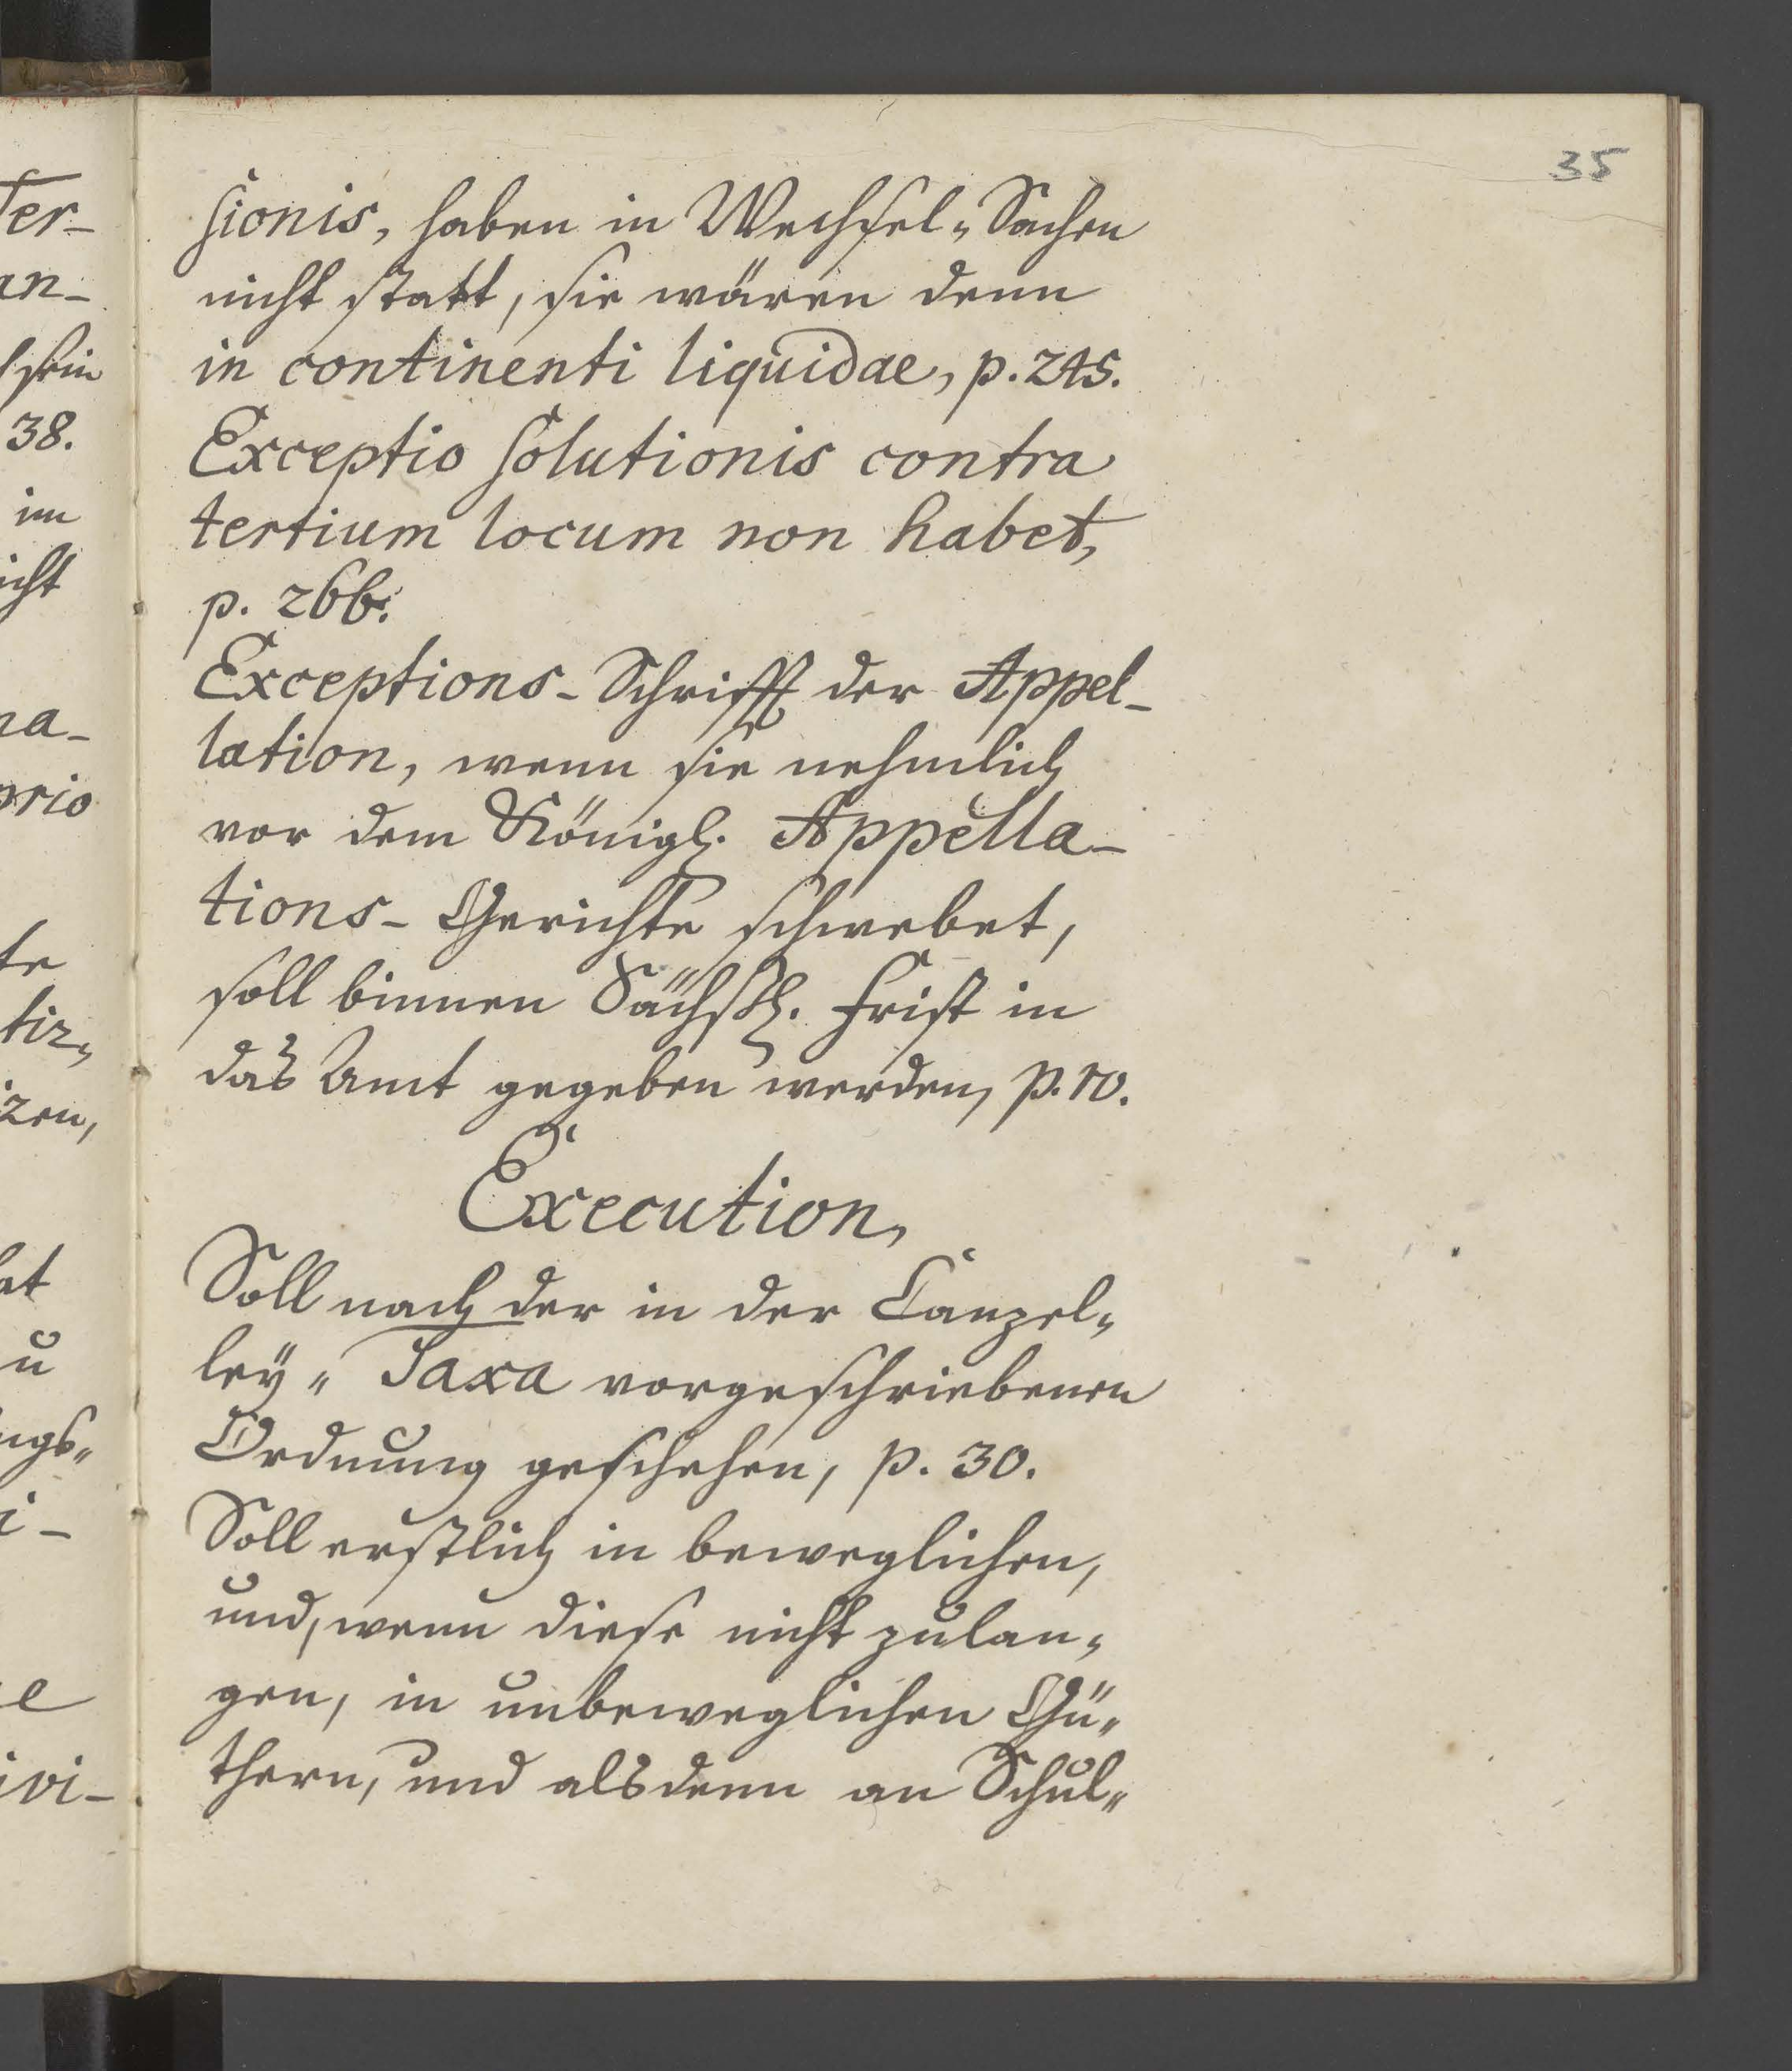 35
sionis, haben in Wechsel-Sachen
nicht statt, sie wären denn
in continenti liquidae, p. 245.
Exceptio solutionis contra
tertium locum non habet,
p. 266.
Exceptions-Schrifft der Appel-
lation, wenn sie nehmlich
vor dem Königl. Appella-
tions-Gerichte schwebet,
soll binnen Sächßl. Frist in
das Amt gegeben werden, p. 10.
Execution,
Soll nach der in der Canzel-
ley-Taxa vorgeschriebenen
Ordnung geschehen, p. 30.
Soll erstlich in beweglichen,
und, wenn diese nicht zulan-
gen, in unbeweglichen Gü-
thern, und alsdenn an Schul-
Ter-
an-
sein
38.
im
icht
na-
prio
te
tir-
izen,
at
u
ngs-
i-
e
ivi-